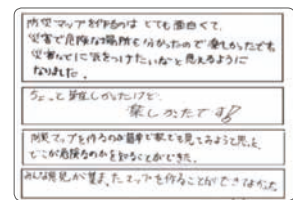 防災マップを作るのはとても面白くて、
災害で危険な場所も分かったので楽しかったです
災害などに気をつけたいなと思えるように
なりました。
ちょっと難しかったけど、
楽しかったです
防災マップを作るのが簡単で家でも見てみようと思った
どこが危険なのかを知ることができた。
みんな意見が集まったマップを作ることができてよかった